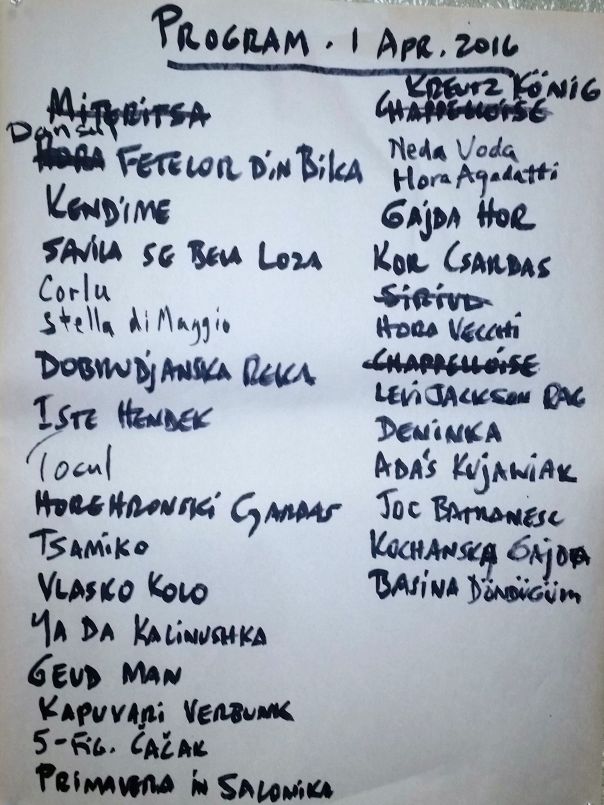 PROGRAM. 1 APR. 2016
MITERITSA
Dansul
HORA FETELOR DIN BIKA
KENDIME
SAVILA SE BELA LOZA
Corlu
Stella di Maggio
DOBRUDJANSKA REKA
ISTE HENDEK
Tocul
HOREHRONSKI CZARDAS
TSAMIKO
VLASKO KOLO
YA DA KALINUSHKA
GEUD MAN
KAPUVARI VERBUNK
5-FIG. ČAČAK
PRIMAVERA IN SALONIKA
KREUTZ KÖNIG
CHAPPELLOISE
Neda Voda
Hora Agadatti
GAJDA HOR
KOR CSARDAS
SIRIUD
HORA VECCHI
CHAPPELLOISE
LEVI JACKSON RAG
DENINKA
ADA'S KUJAWIAK
JOC BATRANESC
KOCHANSKA GAJDA
BASINA DÖNDÜGÜM